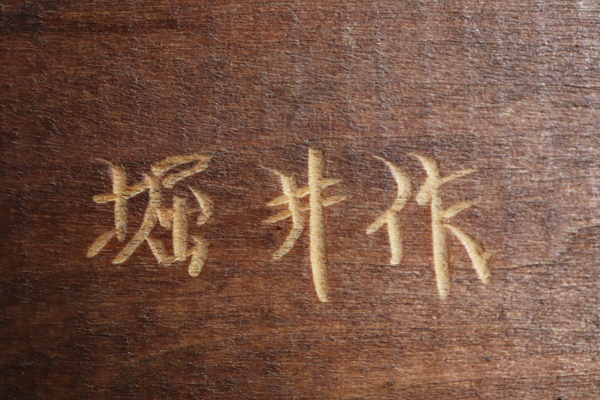 堀井作